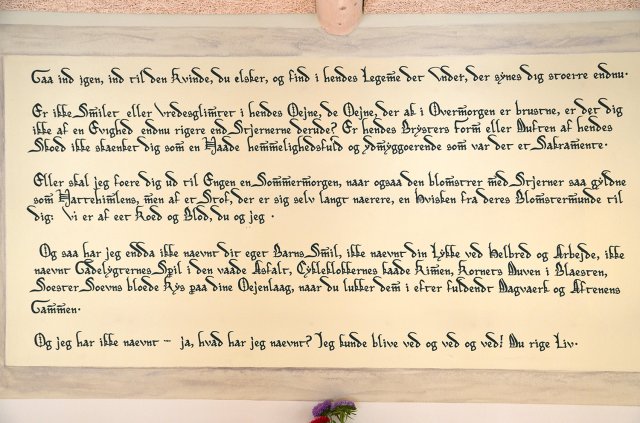 Gaa ind igen, ind til den Kvinde, du elsker, og find i hendes Legeme det Undet, der synes dig stoerre endnu.
Er ikke Smilet eller Vredesglimtet i hendes Oejne, de Oejne, der ak i Overmorgen er brustne, er det dig
ikke af en Evighed endnu rigere end Stjernerne derude? Er hendes Brysters Form eller Duften af hendes
Skød ikke skaenket dig som en Naade hemmelighedsfuld og ydmyggoerende som var det et Sakramente.
Eller skal jeg foere dig ud til Engen en Sommermorgen, naar ogsaa den blomstrer med Stjerner saa gyldne
som Nattehimlens, men af et Stof, der er sig selv langt naerere, en Hvisken fra deres Blomstermunde til
dig: Vi er af eet Kød og Blod, du og jeg.
Og saa har jeg endda ikke naevnt dit eget Barns Smil, ikke naevnt din Lykke ved Helbred og Arbejde, ikke
naevnt Gadelygternes Spil i den vaade Asfalt, Cykleklokkernes kaade Kimen, Kornets Duven i Blaesten,
Soester Soevns bloede Kys paa dine Oejenlaag, naar du lukker dem i efter fuldendt Dagvaerk og Aftenens
Gammen.
Og jeg har ikke naevnt - ja, hvad har jeg naevnt? Jeg kunde blive ved og ved og ved! Du rige Liv.